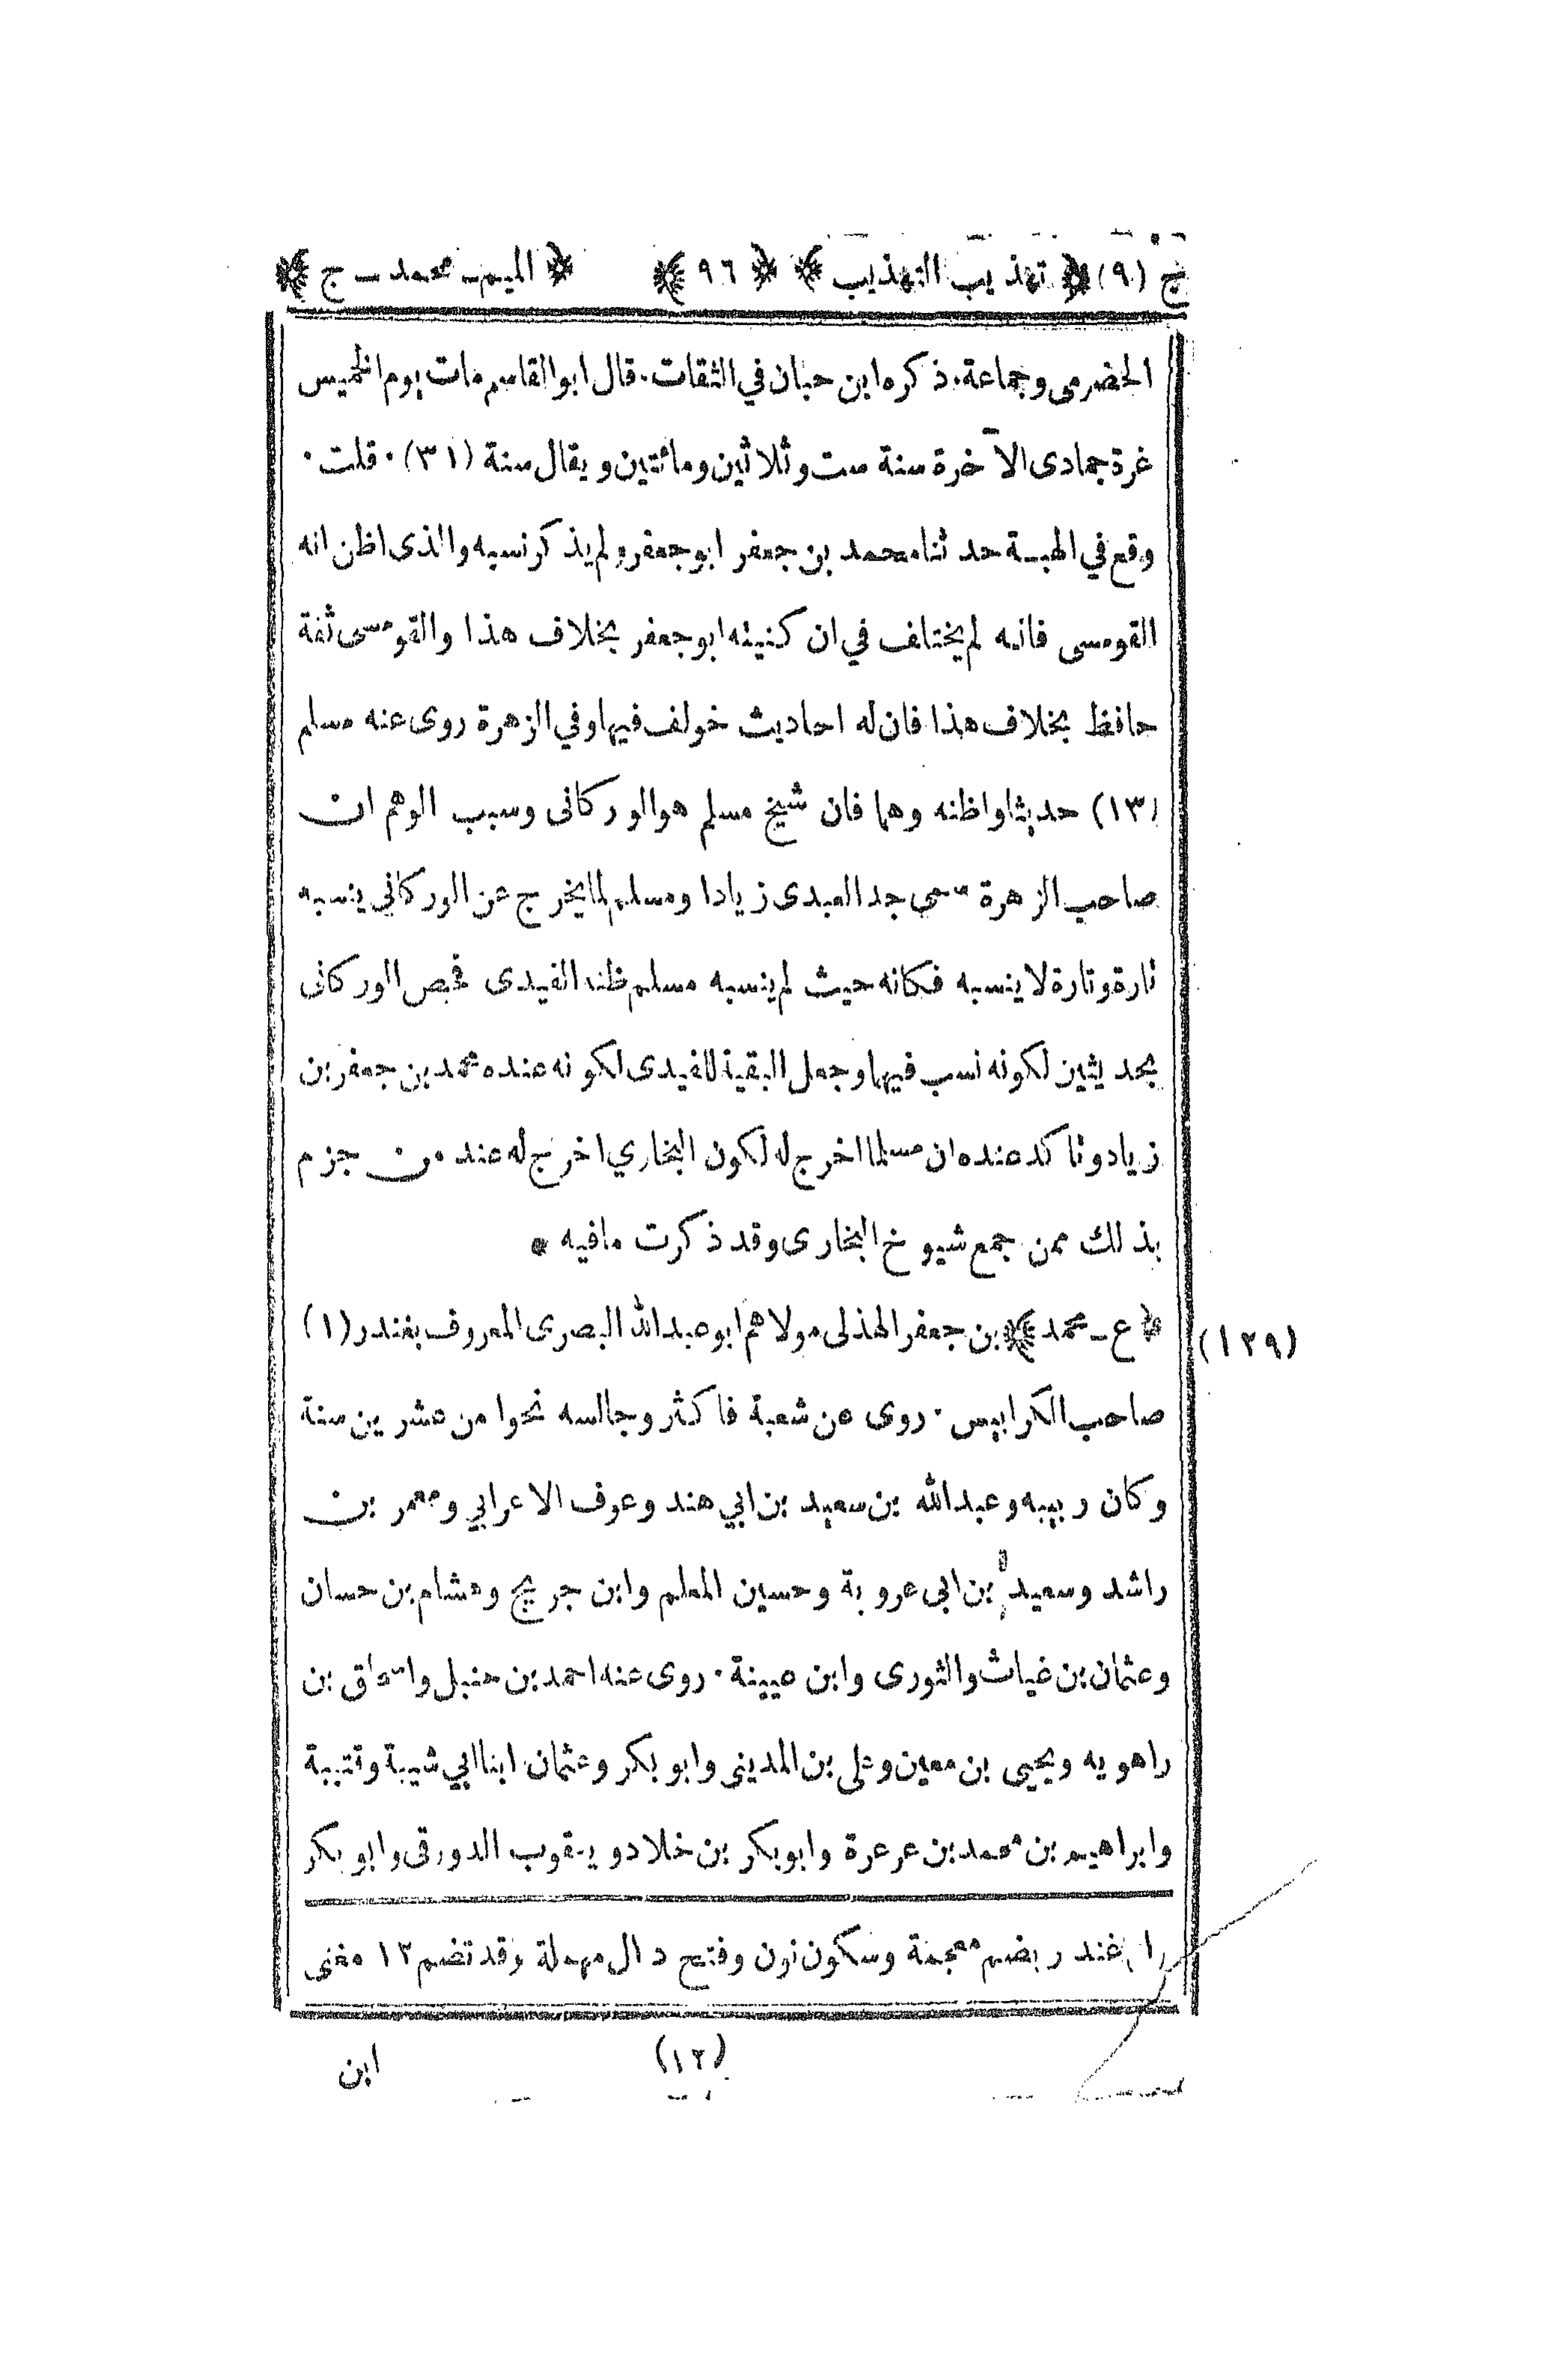 ج (٩) ﴿ تهذيب التهذيب ﴾ ﴿ ٩٦ ﴾ ﴿ الميم ـ محمد ـ ج ﴾
الحضرمى وجماعة. ذكره ابن حبان في الثقات. قال ابو القاسم مات يوم الخميس
غرة جمادى الآخرة سنة ست وثلاثين ومائتين ويقال سنة (٣١). قلت.
وقع في الهبة حدثنا محمد بن جعفر ابو جعفر ولم يذكر نسبه والذى اظن انه
القومسى فانه لم يختلف في ان كنيته ابو جعفر بخلاف هذا والقومسى ثقة
حافظ بخلاف هذا فان له احاديث خولف فيها وفي الزهرة روى عنه مسلم
(١٣) حديثا واظنه وهما فان شيخ مسلم هو الوركانى وسبب الوهم ان
صاحب الزهرة سمى جد العبدى زيادا ومسلم لما يخرج عن الوركاني ينسبه
تارة وتارة لا ينسبه فكانه حيث لم ينسبه مسلم ظنه الفيدى فخص الوركانى
بحديثين لكونه نسب فيها وجعل البقية للفيدى لكونه عنده محمد بن جعفر بن
زياد وتاكد عنده ان مسلما اخرج له لكون البخاري اخرج له عند من جزم
بذلك ممن جمع شيوخ البخارى وقد ذكرت مافيه *
﴿ ع ـ محمد ﴾ بن جعفر الهذلى مولاهم ابو عبد الله البصرى المعروف بغندر (١)
(١٢٩)
صاحب الكرابيس. روى عن شعبة فاكثر وجالسه نحوا من عشرين سنة
وكان ربيبه وعبد الله بن سعيد بن ابي هند وعوف الاعرابي ومعمر بن
راشد وسعيد بن ابى عروبة وحسين المعلم وابن جريج وهشام بن حسان
وعثمان بن غياث والثورى وابن عيينة. روى عنه احمد بن حنبل واسحاق بن
راهويه ويحيى بن معين وعلى بن المدينى وابو بكر وعثمان ابنا ابي شيبة وقتيبة
وابراهيم بن محمد بن عرعرة وابو بكر بن خلاد ويعقوب الدورقى وابو بكر
(١) غندر بضم معجمة وسكون نون وفتح دال مهملة وقد تضم ١٢ مغنى
(١٢) ابن